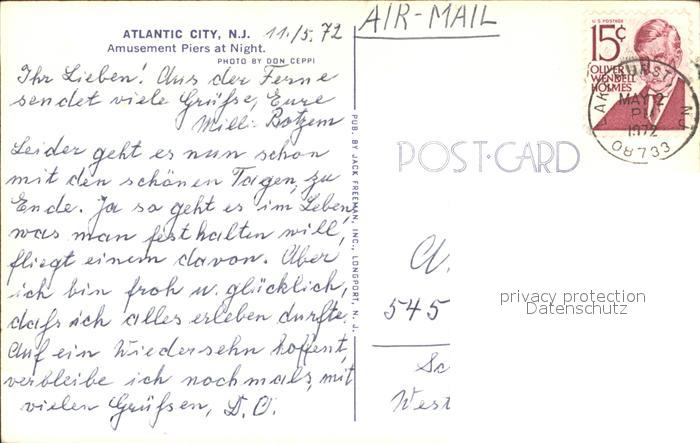 ATLANTIC CITY, N.J. 11./5. 72
Amusement Piers at Night.
PHOTO BY DON CEPPI
Ihr Lieben! Aus der Ferne
sendet viele Grüße, Eure
Milli
Leider geht es nun schon
mit den schönen Tagen, zu
Ende. Ja so geht es im Leben,
was man festhalten will,
fliegt einem davon. Aber
ich bin froh u. glücklich,
daß ich alles erleben durfte.
Auf ein Wiedersehn hoffent,
verbleibe ich nochmals, mit
vielen Grüßen, D. O.
PUB. BY JACK FREEMAN, INC., LONGPORT, N. J.
AIR-MAIL
U.S. POSTAGE
15¢
OLIVER
WENDELL
HOLMES
LAKEHURST NJ
MAY 12
PM
1972
08733
POST-CARD
545
West
privacy protection
Datenschutz